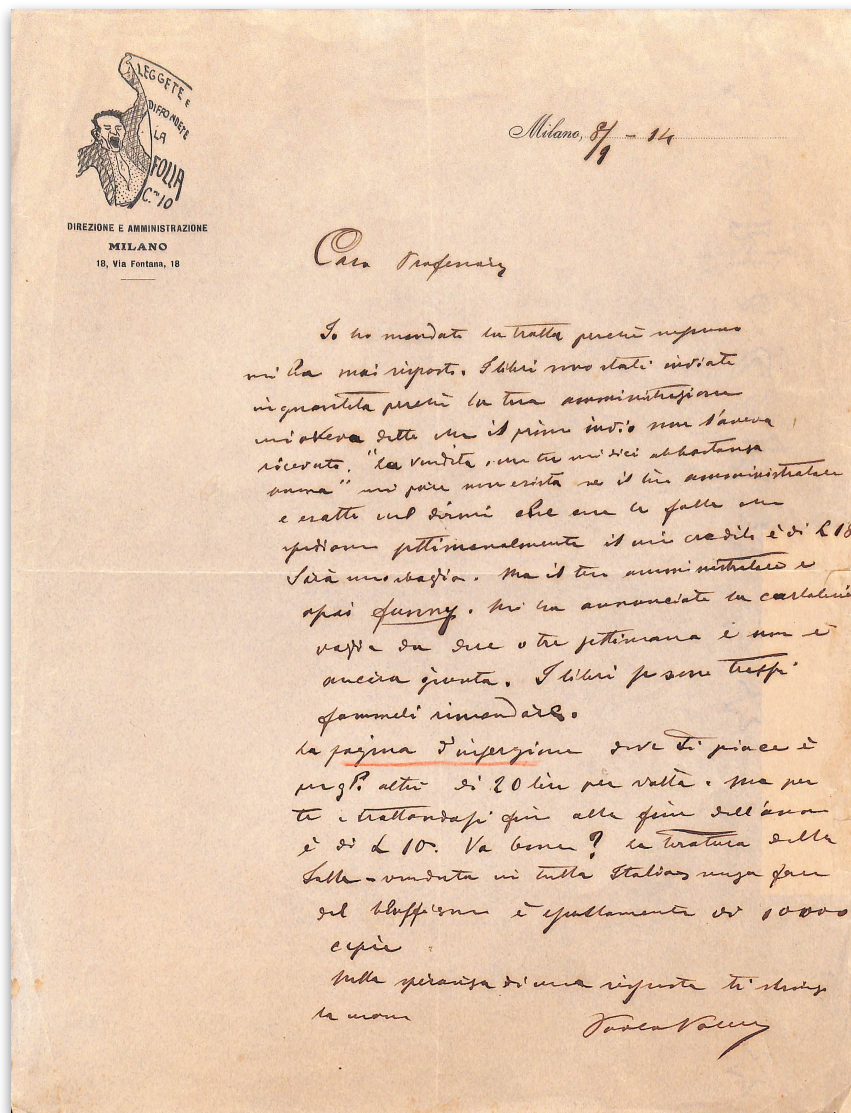 LEGGETE E
DIFFONDETE
LA
FOLLA
C.mi 10
DIREZIONE E AMMINISTRAZIONE
MILANO
18, Via Fontana, 18
Milano, 8/9 - 14
Caro Professore
Io ho mandato la tratta perchè nessuno
mi ha mai risposto. I libri sono stati inviati
in quantità perchè la tua amministrazione
mi aveva detto che il primo invio non l'aveva
ricevuto. "la vendita, che tu mi dici abbastanza
buona" mi pare non esista se il tuo amministratore
è esatto nel dirmi che con le folle che
spedisco settimanalmente il mio credito è di L 18
Sarà uno sbaglio. Ma il tuo amministratore è
assai funny. Mi ha annunciato la cartolina
vaglia da due o tre settimane e non è
ancora giunta. I libri se sono troppi
fammeli rimandare.
la pagina d'inserzione dove ti piace è
per gli altri di 20 lire per volta. Ma per
te e trattandosi fin alla fine dell'anno
è di L 10. Va bene? la tiratura della
Folla - venduta in tutta Italia senza fare
del bluffismo è esattamente di 10000
copie
Nella speranza di una risposta ti stringo
la mano
Paolo Valera